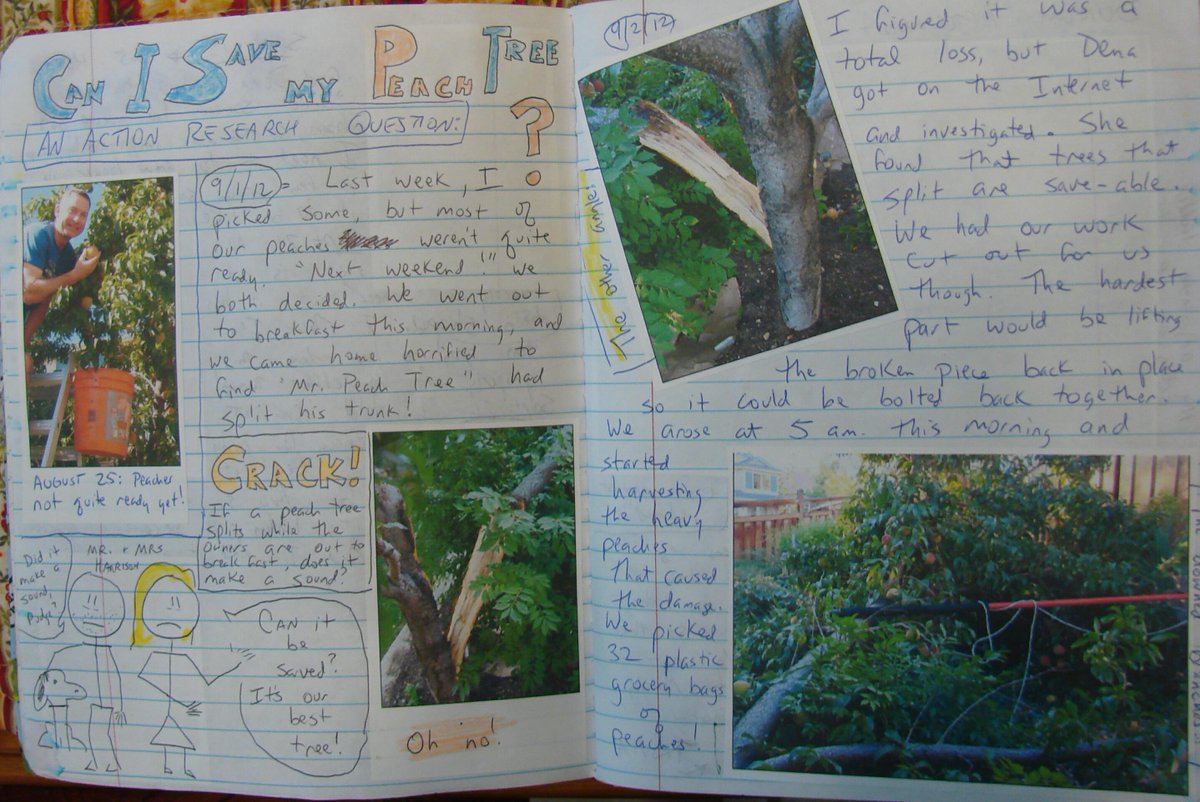 CAN I SAVE
MY PEACH TREE
?
AN ACTION RESEARCH QUESTION:
9/1/12 = Last week, I
picked some, but most of
our peaches weren't quite
ready. "Next weekend!" we
both decided. We went out
to breakfast this morning, and
we came home horrified to
find "Mr. Peach Tree" had
split his trunk!
AUGUST 25: Peaches
not quite ready yet!
CRACK!
If a peach tree
splits while the
owners are out to
breakfast, does it
make a sound?
Did it
make a
sound,
MR. + MRS
HARRISON
CAN it
be
saved?
It's our
best
tree!
Oh no!
9/2/12
The other
I figured it was a
total loss, but Dena
got on the Internet
and investigated. She
found that trees that
split are save-able.
We had our work
cut out for us
though. The hardest
part would be lifting
the broken piece back in place
so it could be bolted back together.
We arose at 5 am. this morning and
started
harvesting
the heavy
peaches
that caused
the damage.
We picked
32 plastic
grocery bags
of
peaches!